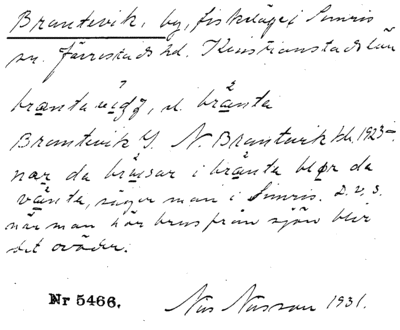 Brantevik, by, fiskläge i Simris
sn. Järrestads hd. Kristianstads län
branta
Brantevik G. N. Brantevik 1923
nar da brusar i branta bler da
vänta, säger man i Simris. D.v.s.
när man hör brus från sjön blir
det oväder.
Nr 5466.
Nils Nilsson 1931.